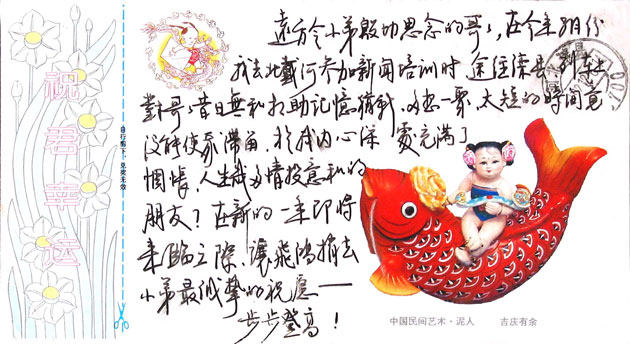 祝君幸运
自行剪下,兑奖无效
远方令小弟殷切思念的哥哥,在今年8月份
我去北戴河参加新闻培训时,途经滦县,列车上
对哥哥昔日无私相助记忆犹新,好想一聚,太短的时间竟
没能使豪滞留,于我内心深处充满了
惆怅,人生哉为情投意和的
朋友?在新的一年即将
来临之际,让飞鸿捎去
小弟最诚挚的祝愿——
步步登高!
中国民间艺术·泥人 吉庆有余